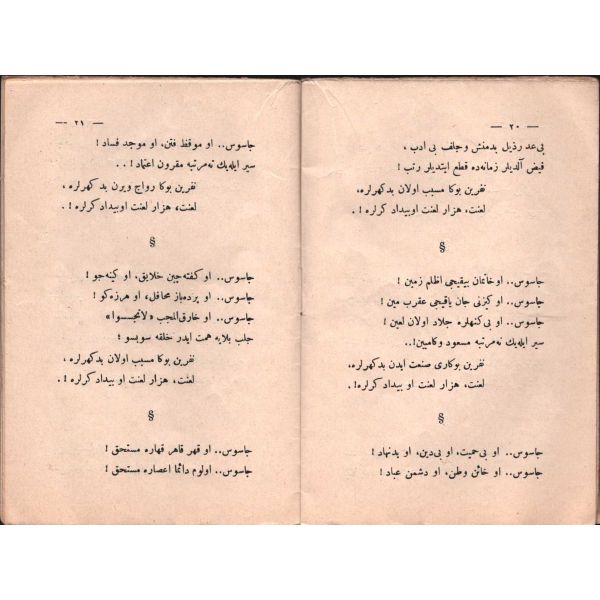 — ٢٠ —
بی عد رذیل بدمنش وجلف بی ادب ،
فیض آلدیلر زمانه‌ده قطع ایتدیلر رتب !
نفرین بوکا مسبب اولان بدکهرلره،
لعنت، هزار لعنت اوبیداد کرلره! .
§
جاسوس.. او خانمان ییقیجی اظلم زمین !
جاسوس.. او کیزلی جان یاقیجی عقرب مین !
جاسوس.. او بی‌کنهلره جلاد اولان لعین !
سیر ایله‌یك نه‌مرتبه مسعود وکامبین!..
نفرین بوکاری صنعت ایدن بدکهرلره،
لعنت، هزار لعنت او بیداد کرلره!.
§
جاسوس.. او بی‌حمیت، او بی‌دین، او بدنهاد !
جاسوس.. او خائن وطن، او دشمن عباد !
— ٢١ —
جاسوس.. او موقظ فتن، او موجد فساد !
سیر ایله‌یك نه‌مرتبه مقرون اعتماد ! . .
نفرین بوکا رواج ویرن بدکهرلره ،
لعنت، هزار لعنت اوبیداد کرلره ! .
§
جاسوس.. او کفته‌چین خلایق، او کینه‌جو !
جاسوس.. او پرده‌باز محافل، او هرزه‌کو !
جاسوس.. او خارق‌الحجب «لاتجسسوا»
جلب بلایه همت ایدر خلقه سوبسو !
نفرین بوکا مسبب اولان بدکهرلره ،
لعنت، هزار لعنت او بیداد کرلره ! .
§
جاسوس.. او قهر قاهر قهاره مستحق !
جاسوس.. اولوم دائما اعصاره مستحق !